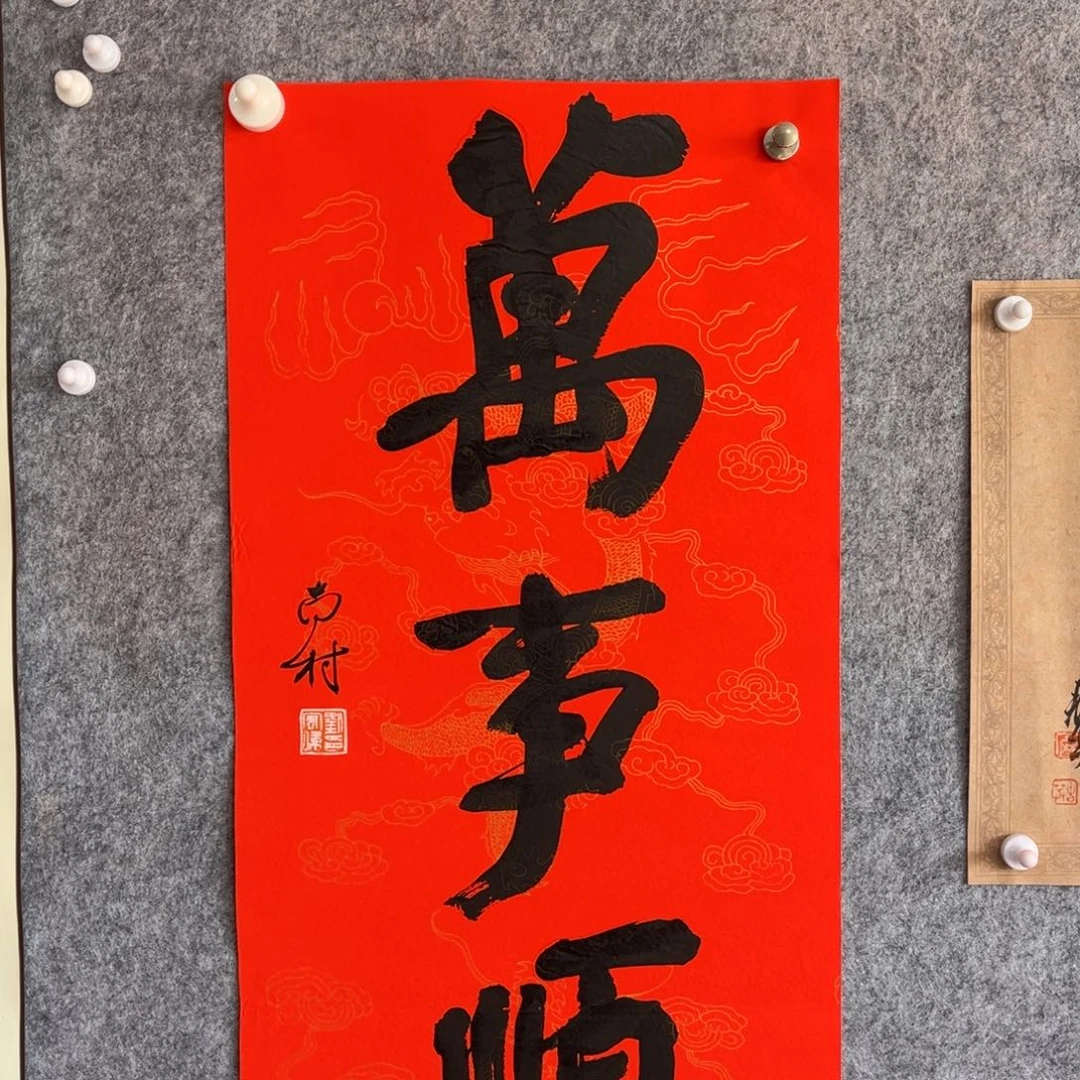 萬事順
村